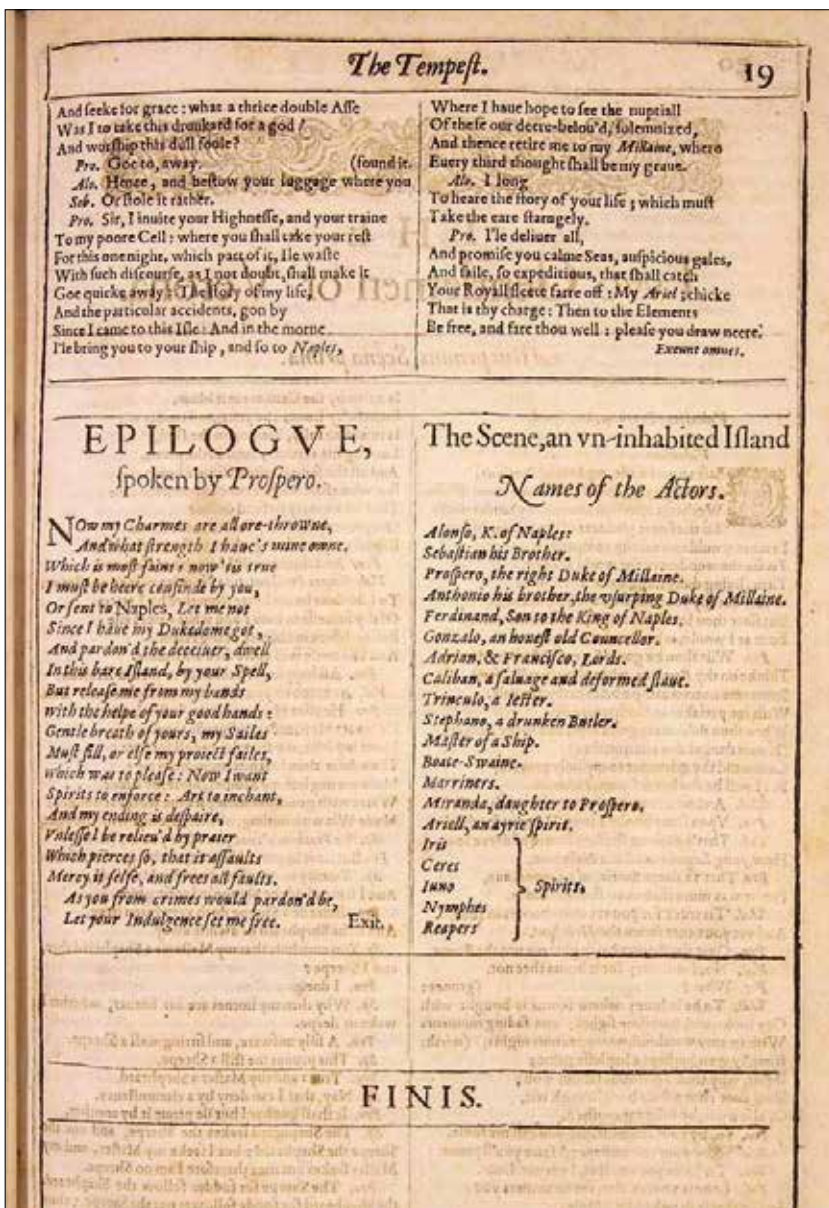 The Tempeſt.
19
And ſeeke for grace: what a thrice double Aſſe
Was I to take this drunkard for a god?
And worſhip this dull foole?
Pro. Goe to, away. (found it.
Alo. Hence, and beſtow your luggage where you
Seb. Or ſtole it rather.
Pro. Sir, I inuite your Highneſſe, and your traine
To my poore Cell: where you ſhall take your reſt
For this one night, which part of it, Ile waſte
With ſuch diſcourſe, as I not doubt, ſhall make it
Goe quicke away: The ſtory of my life,
And the particular accidents, gon by
Since I came to this Iſle: And in the morne
I'le bring you to your ſhip, and ſo to Naples,
Where I haue hope to ſee the nuptiall
Of theſe our deere-belou'd, ſolemnized,
And thence retire me to my Millaine, where
Euery third thought ſhall be my graue.
Alo. I long
To heare the ſtory of your life; which muſt
Take the eare ſtarngely.
Pro. I'le deliuer all,
And promiſe you calme Seas, auſpicious gales,
And ſaile, ſo expeditious, that ſhall catch
Your Royall fleete farre off: My Ariel; chicke
That is thy charge: Then to the Elements
Be free, and fare thou well: pleaſe you draw neere.
Exeunt omnes.
EPILOGVE,
ſpoken by Proſpero.
NOw my Charmes are all ore-throwne,
And what ſtrength I haue's mine owne.
Which is moſt faint: now 'tis true
I muſt be heere confinde by you,
Or ſent to Naples, Let me not
Since I haue my Dukedome got,
And pardon'd the deceiuer, dwell
In this bare Iſland, by your Spell,
But releaſe me from my bands
With the helpe of your good hands:
Gentle breath of yours, my Sailes
Muſt fill, or elſe my proiect failes,
Which was to pleaſe: Now I want
Spirits to enforce: Art to inchant,
And my ending is deſpaire,
Vnleſſe I be relieu'd by praier
Which pierces ſo, that it aſſaults
Mercy it ſelfe, and frees all faults.
As you from crimes would pardon'd be,
Let your Indulgence ſet me free. Exit.
The Scene, an vn-inhabited Iſland
Names of the Actors.
Alonſo, K. of Naples:
Sebaſtian his Brother.
Proſpero, the right Duke of Millaine.
Anthonio his brother, the vſurping Duke of Millaine.
Ferdinand, Son to the King of Naples.
Gonzalo, an honeſt old Councellor.
Adrian, & Franciſco, Lords.
Caliban, a ſaluage and deformed ſlaue.
Trinculo, a Ieſter.
Stephano, a drunken Butler.
Maſter of a Ship.
Boate-Swaine.
Marriners.
Miranda, daughter to Proſpero.
Ariell, an ayrie ſpirit.
Iris
Ceres
Iuno
Nymphes
Reapers
Spirits.
FINIS.